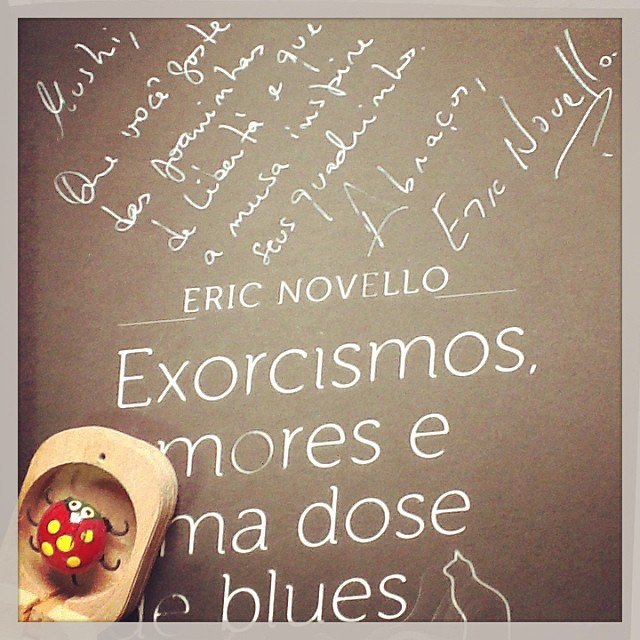 Mushi,
Que você goste
das joaninhas
de Libertà e que
a musa inspire
seus quadrinhos.
Abraços,
Eric Novello.
ERIC NOVELLO
Exorcismos,
mores e
ma dose
de blues